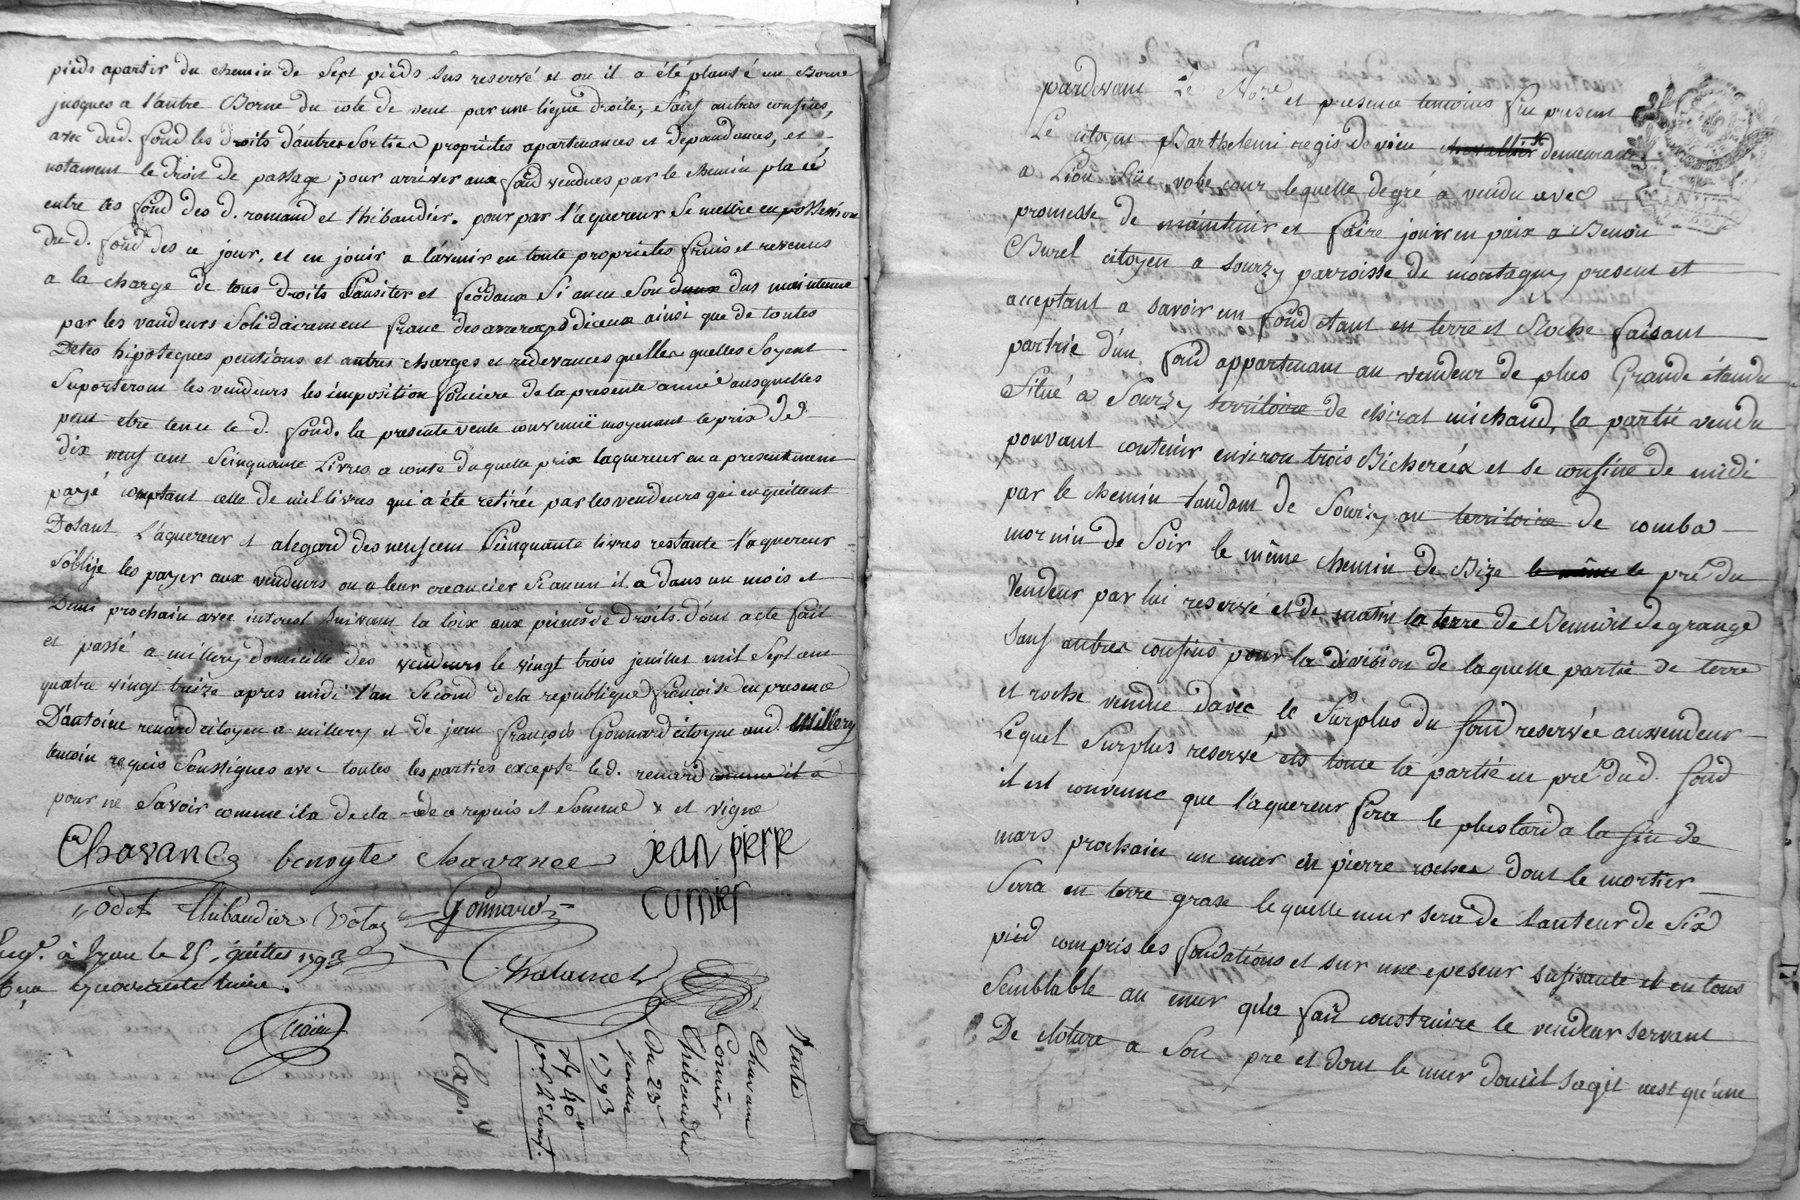 pieds apartir du chemin de sept pieds sus reservé et ou il a été planté un Borne
jusques a l'autre Borne du coté de vent par une ligne droite, sauf autres confins,
avec dud. fond les droits d'autres sorties propriètes apartenances et dépandances, et
notament le droit de passage pour arriver aux fond vendues par le chemin placé
entre les fond des d. romand et thibaudier. pour par l'aquereur se mettre en possession
du d. fond des ce jour, et en jouir a l'avenir en toute proprietés fruis et revenus
a la charge de tous droits Sansiter et feodaux si aucun son dus maintenue
par les vandeurs Solidairement franc des arrerages diceux ainsi que de toutes
Detes hipoteques pentions et autres charges et redevances quelles quelles soyent
Suporteront les vendeurs les imposition fonciere de la presente année ausquelles
peut etre tenu le d. fond. la presente vente convenuë moyenant le prix de
dix neuf cent seinquante Livres a conte duquelle prix laquereur en a presentement
payé comptant celle de mil livres qui a été retirée par les vendeurs qui en quittent
Dotant L'aquereur et alegard des neufcent Seinquante livres restante l'aquereur
s'oblije les payer aux vendeurs ou a leur creancier si aucun il a dans un mois et
Demi prochain avec interest suivant la loix aux peines de droits. dont acte fait
et passé a millery domicille des vendeurs le vingt trois jeuillet mil sept cent
quatre vingt treize apres midi l'an second de la republique françoise en presence
D'antoine renard citoyen a millery et de jean françois Gonnard citoyen aud. Millery
temoin requis soussignes avec toutes les parties excepté led. renard comme il a
pour ne savoir comme il a declaré de ce requis et sommé x et vigne
Chavance benoyte chavance jean pierre
odet thibaudier Gonnard cornier
Enrg. à Lyon le 25 juillet 1793
Reçu quarante
Chatanet
Vente
Chavance
Cornier
Thibaudier
Du 23
1793
pardevant Le No.re et presence temoins fut present
Le citoyen Barthelemi regis devieu chevallier demeurant
a Lion rüe vobecour lequelle degré a vendu avec
promesse de maintenir et faire jouir en paix a Benoit
Burel citoyen a sourzy parroisse de montagny present et
acceptant a savoir un fond etant en terre et Roche faisant
partie d'un fond appartenant au vendeur de plus Grande étendu
situé a Sourzy territoire de chirat michaud, la partie vendu
pouvant contenir environ trois Bicherées et se confine de midi
par le chemin tandant de Sourzy au territoire de comba
mornin de soir le même chemin de Bize le même le pré du
Vendeur par lui reservé et de matin la terre de Bennoit degrange
sauf autres confins pour la division de laquelle partie de terre
et roche vendue davec le surplus du fond reservée au vendeur
Lequel surplus reservé est toute la partie en pré dud. fond
il est convenue que l'aquereur fera le plustard a la fin de
mars prochain un mur en pierre roches dont le mortier
Serra en terre grase lequelle mur sera de hauteur de six
pied compris les fondations et sur une epeseur sufisante et en tous
semblable au mur qu'a fait construire le vendeur servant
De cloture a son pré et dont le mur dont il sagit n'est qu'une